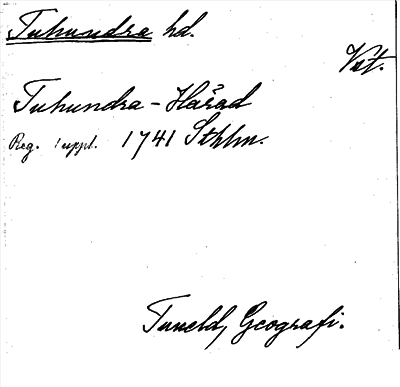 Tuhundra hd.
Vst.
Tuhundra-Härad
Reg. suppl. 1741 Sthlm.
Tuneld, Geografi.